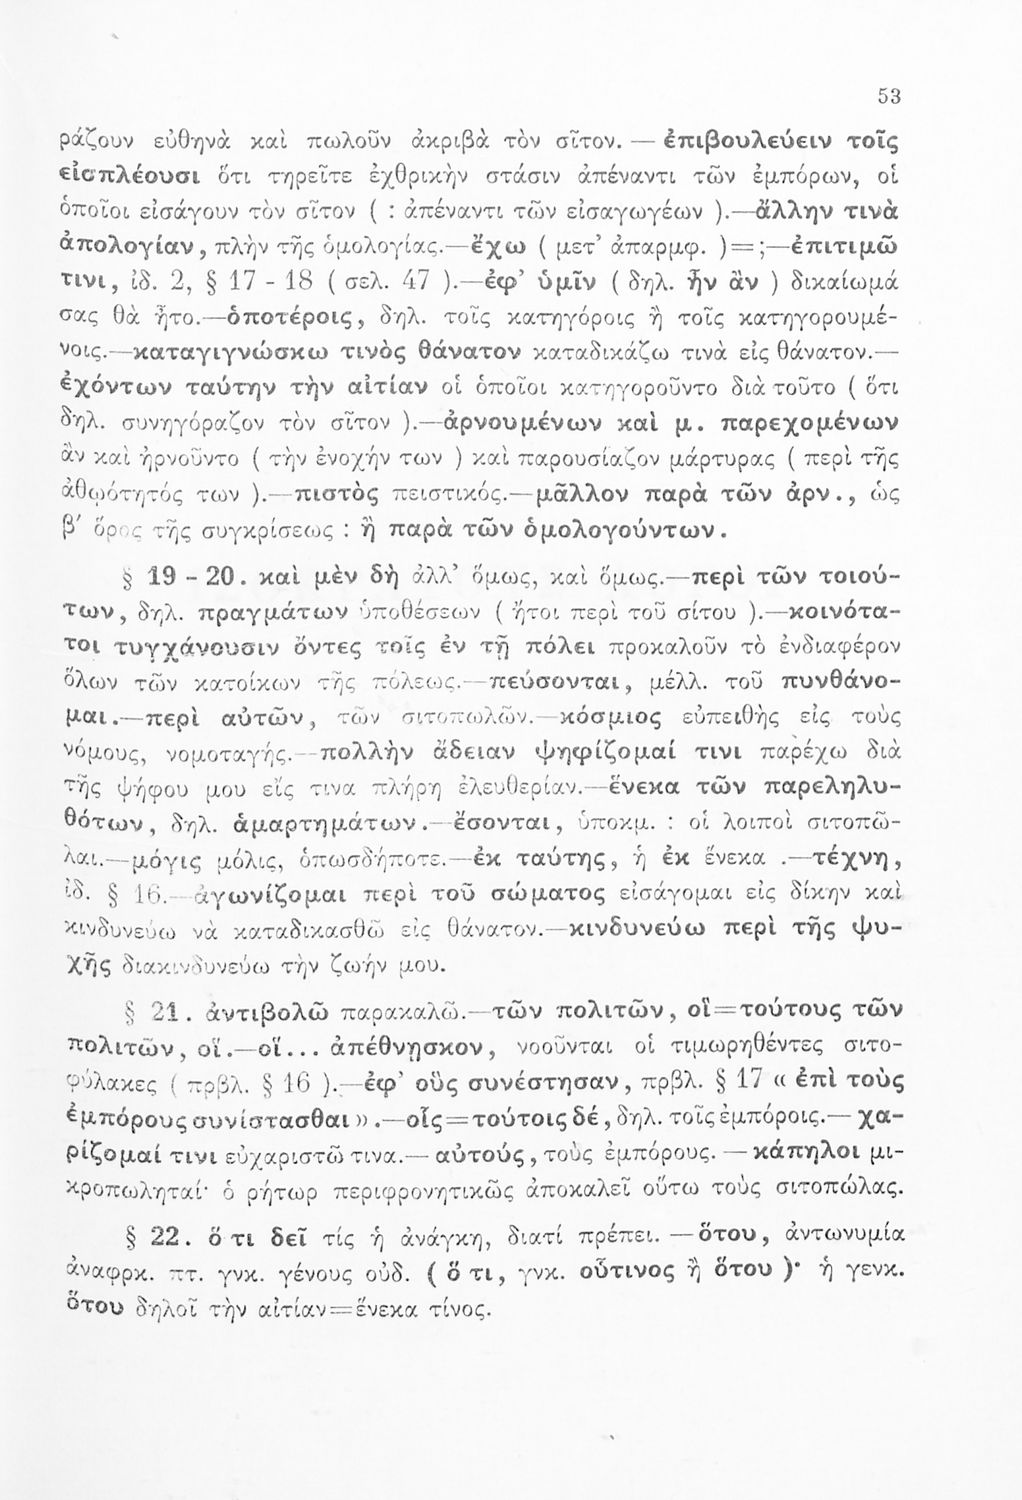 53
ράζουν εὐθηνὰ καὶ πωλοῦν ἀκριβὰ τὸν σῖτον. — ἐπιβουλεύειν τοῖς
εἰσπλέουσι ὅτι τηρεῖτε ἐχθρικὴν στάσιν ἀπέναντι τῶν ἐμπόρων, οἱ
ὁποῖοι εἰσάγουν τὸν σῖτον ( : ἀπέναντι τῶν εἰσαγωγέων ).—ἄλλην τινὰ
ἀπολογίαν, πλὴν τῆς ὁμολογίας.—ἔχω ( μετ’ ἀπαρμφ. )=;—ἐπιτιμῶ
τινι, ἰδ. 2, § 17 - 18 ( σελ. 47 ).—ἐφ’ ὑμῖν ( δηλ. ἦν ἂν ) δικαίωμά
σας θὰ ἦτο.—ὁποτέροις, δηλ. τοῖς κατηγόροις ἢ τοῖς κατηγορουμέ-
νοις.—καταγιγνώσκω τινὸς θάνατον καταδικάζω τινὰ εἰς θάνατον.—
ἐχόντων ταύτην τὴν αἰτίαν οἱ ὁποῖοι κατηγοροῦντο διὰ τοῦτο ( ὅτι
δηλ. συνηγόραζον τὸν σῖτον ).—ἀρνουμένων καὶ μ. παρεχομένων
ἂν καὶ ἠρνοῦντο ( τὴν ἐνοχήν των ) καὶ παρουσίαζον μάρτυρας ( περὶ τῆς
ἀθῳότητός των ).—πιστὸς πειστικός.—μᾶλλον παρὰ τῶν ἀρν., ὡς
β΄ ὅρος τῆς συγκρίσεως : ἢ παρὰ τῶν ὁμολογούντων.
§ 19 - 20. καὶ μὲν δὴ ἀλλ’ ὅμως, καὶ ὅμως.—περὶ τῶν τοιού-
των, δηλ. πραγμάτων ὑποθέσεων ( ἤτοι περὶ τοῦ σίτου ).—κοινότα-
τοι τυγχάνουσιν ὄντες τοῖς ἐν τῇ πόλει προκαλοῦν τὸ ἐνδιαφέρον
ὅλων τῶν κατοίκων τῆς πόλεως.—πεύσονται, μέλλ. τοῦ πυνθάνο-
μαι.—περὶ αὐτῶν, τῶν σιτοπωλῶν.—κόσμιος εὐπειθὴς εἰς τοὺς
νόμους, νομοταγής.—πολλὴν ἄδειαν ψηφίζομαί τινι παρέχω διὰ
τῆς ψήφου μου εἴς τινα πλήρη ἐλευθερίαν.—ἕνεκα τῶν παρεληλυ-
θότων, δηλ. ἁμαρτημάτων.—ἔσονται, ὑποκμ. : οἱ λοιποὶ σιτοπῶ-
λαι.—μόγις μόλις, ὁπωσδήποτε.—ἐκ ταύτης, ἡ ἐκ ἕνεκα .—τέχνη,
ἰδ. § 16.—ἀγωνίζομαι περὶ τοῦ σώματος εἰσάγομαι εἰς δίκην καὶ
κινδυνεύω νὰ καταδικασθῶ εἰς θάνατον.—κινδυνεύω περὶ τῆς ψυ-
χῆς διακινδυνεύω τὴν ζωήν μου.
§ 21. ἀντιβολῶ παρακαλῶ.—τῶν πολιτῶν, οἳ=τούτους τῶν
πολιτῶν, οἵ.—οἵ... ἀπέθνῃσκον, νοοῦνται οἱ τιμωρηθέντες σιτο-
φύλακες ( πρβλ. § 16 ).—ἐφ’ οὓς συνέστησαν, πρβλ. § 17 « ἐπὶ τοὺς
ἐμπόρους συνίστασθαι ».—οἷς=τούτοις δέ, δηλ. τοῖς ἐμπόροις.— χα-
ρίζομαί τινι εὐχαριστῶ τινα.— αὐτούς, τοὺς ἐμπόρους. — κάπηλοι μι-
κροπωληταί· ὁ ῥήτωρ περιφρονητικῶς ἀποκαλεῖ οὕτω τοὺς σιτοπώλας.
§ 22. ὅ τι δεῖ τίς ἡ ἀνάγκη, διατί πρέπει. — ὅτου, ἀντωνυμία
ἀναφρκ. πτ. γνκ. γένους οὐδ. ( ὅ τι, γνκ. οὗτινος ἢ ὅτου )· ἡ γενκ.
ὅτου δηλοῖ τὴν αἰτίαν=ἕνεκα τίνος.